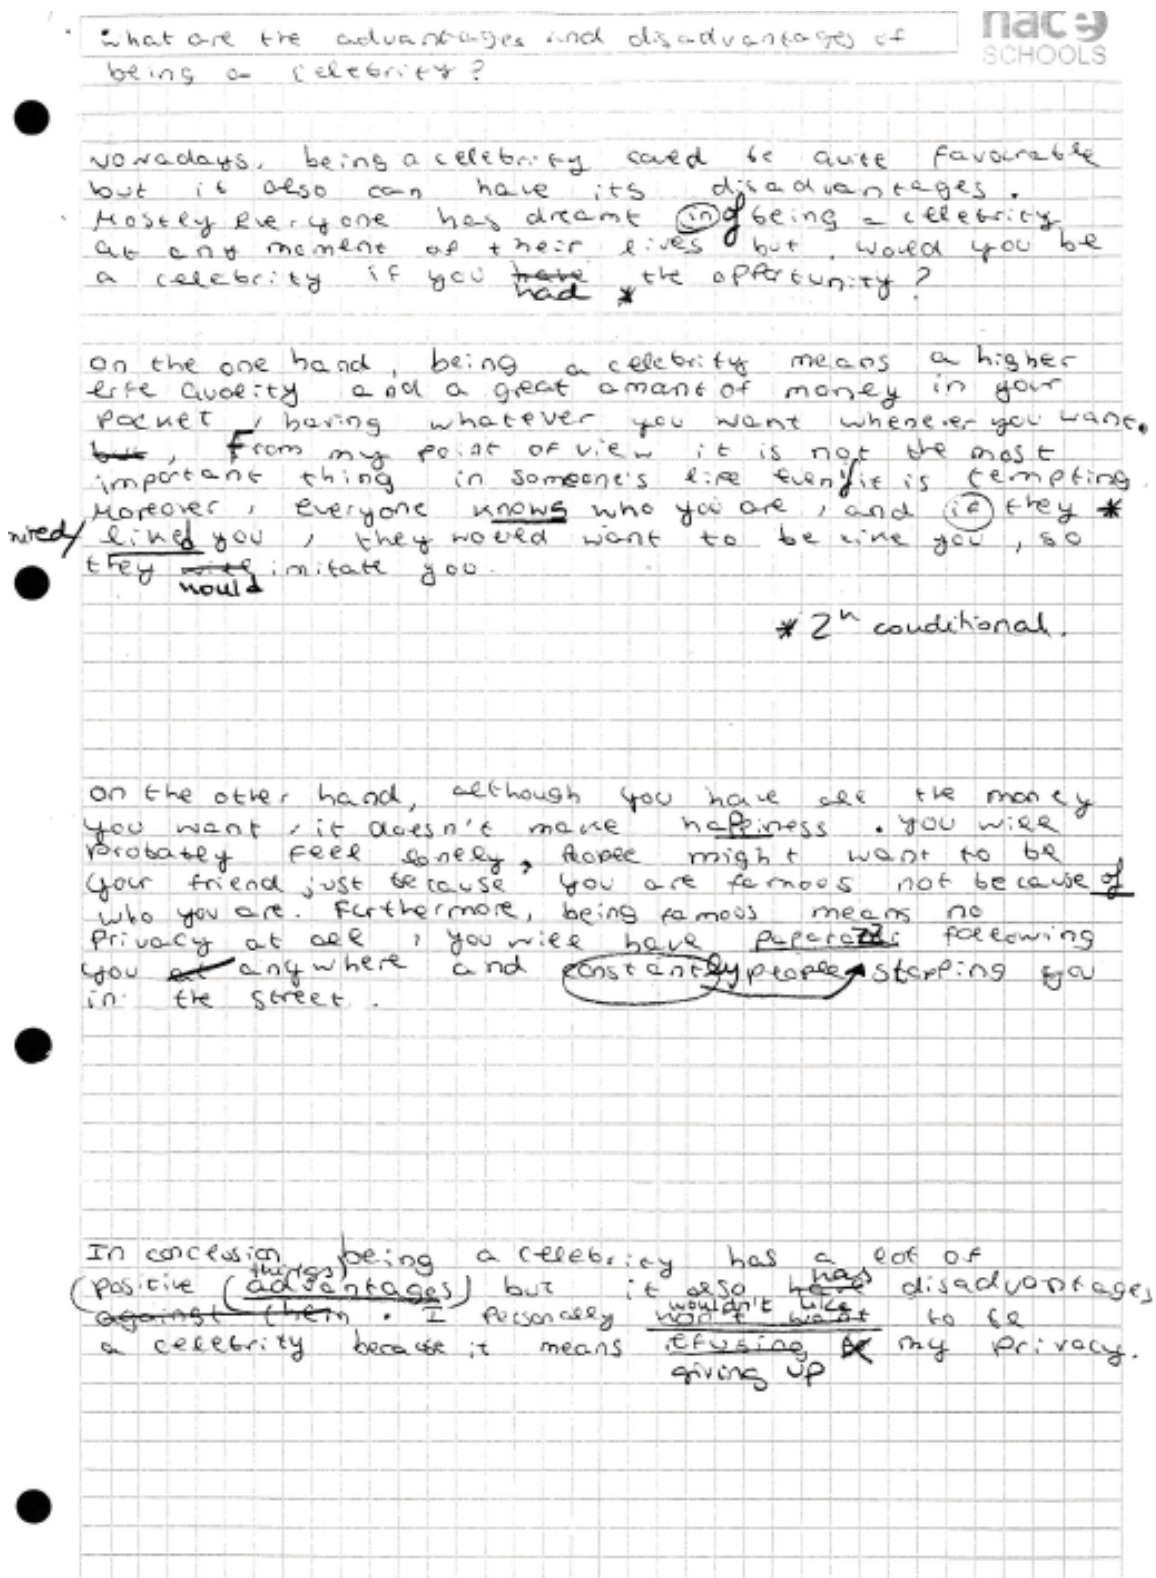 nace
SCHOOLS
What are the advantages and disadvantages of
being a celebrity?
Nowadays, being a celebrity could be quite favourable
but it also can have its disadvantages.
Mostly everyone has dreamt in of being a celebrity
at any moment of their lives but, would you be
a celebrity if you have the opportunity?
had *
On the one hand, being a celebrity means a higher
life quality and a great amant of money in your
pocket, having whatever you want whenever you want.
but, From my point of view it is not the most
important thing in someone's life even if it is tempting
Moreover, everyone knows who you are, and if they *
liked you, they would want to be like you, so
they will imitate you.
would
* 2n conditional.
On the other hand, although you have all the money
you want, it doesn't make happiness. You will
probably feel lonely, People might want to be
your friend just because you are famous not because of
who you are. Furthermore, being famous means no
privacy at all, you will have paparazzi following
you at anywhere and constantly people stopping you
in the street.
In conclusion, being a celebrity has a lot of
things has
positive advantages but it also have disadvantages
wouldn't like
against them. I personally won't want to be
a celebrity because it means refusing my privacy.
giving up